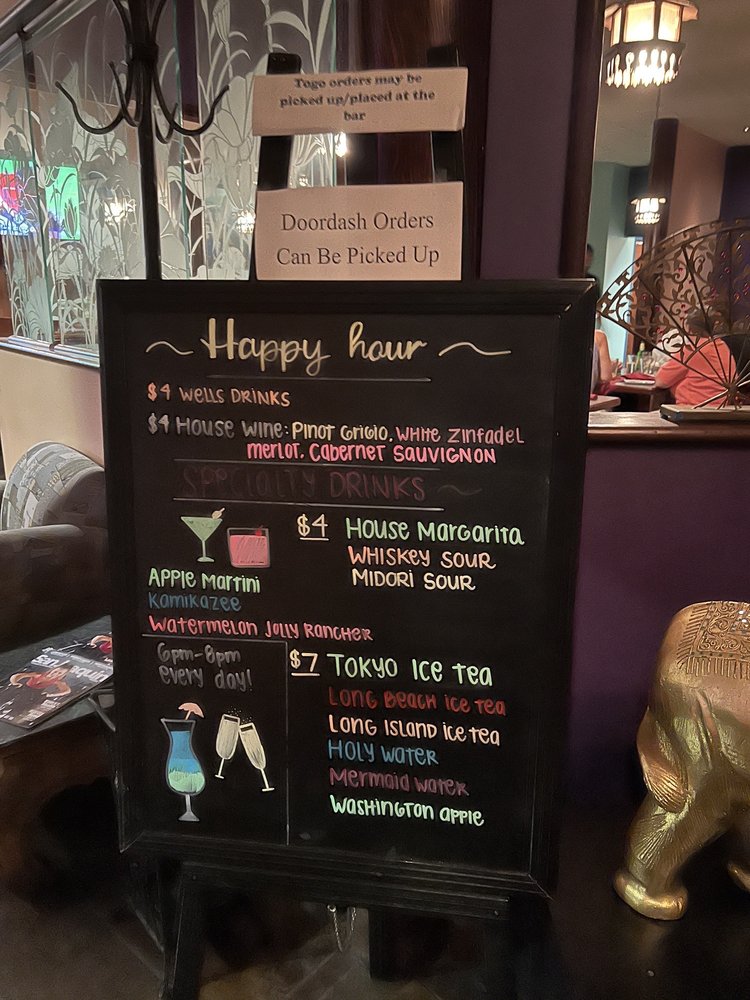 Togo orders may be
picked up/placed at the
bar
Doordash Orders
Can Be Picked Up
Happy hour
$4 WELLS DRINKS
$4 HOUSE WINE: PINOT GRIGIO, WHITE ZINFADEL
MERLOT, CABERNET SAUVIGNON
SPECIALTY DRINKS
$4 HOUSE MARGARITA
WHISKEY SOUR
MIDORI SOUR
APPLE MARTINI
KAMIKAZEE
WATERMELON JOLLY RANCHER
6pm-8pm
every day!
$7 TOKYO ICE TEA
LONG BEACH ICE TEA
LONG ISLAND ICE TEA
HOLY WATER
MERMAID WATER
WASHINGTON APPLE